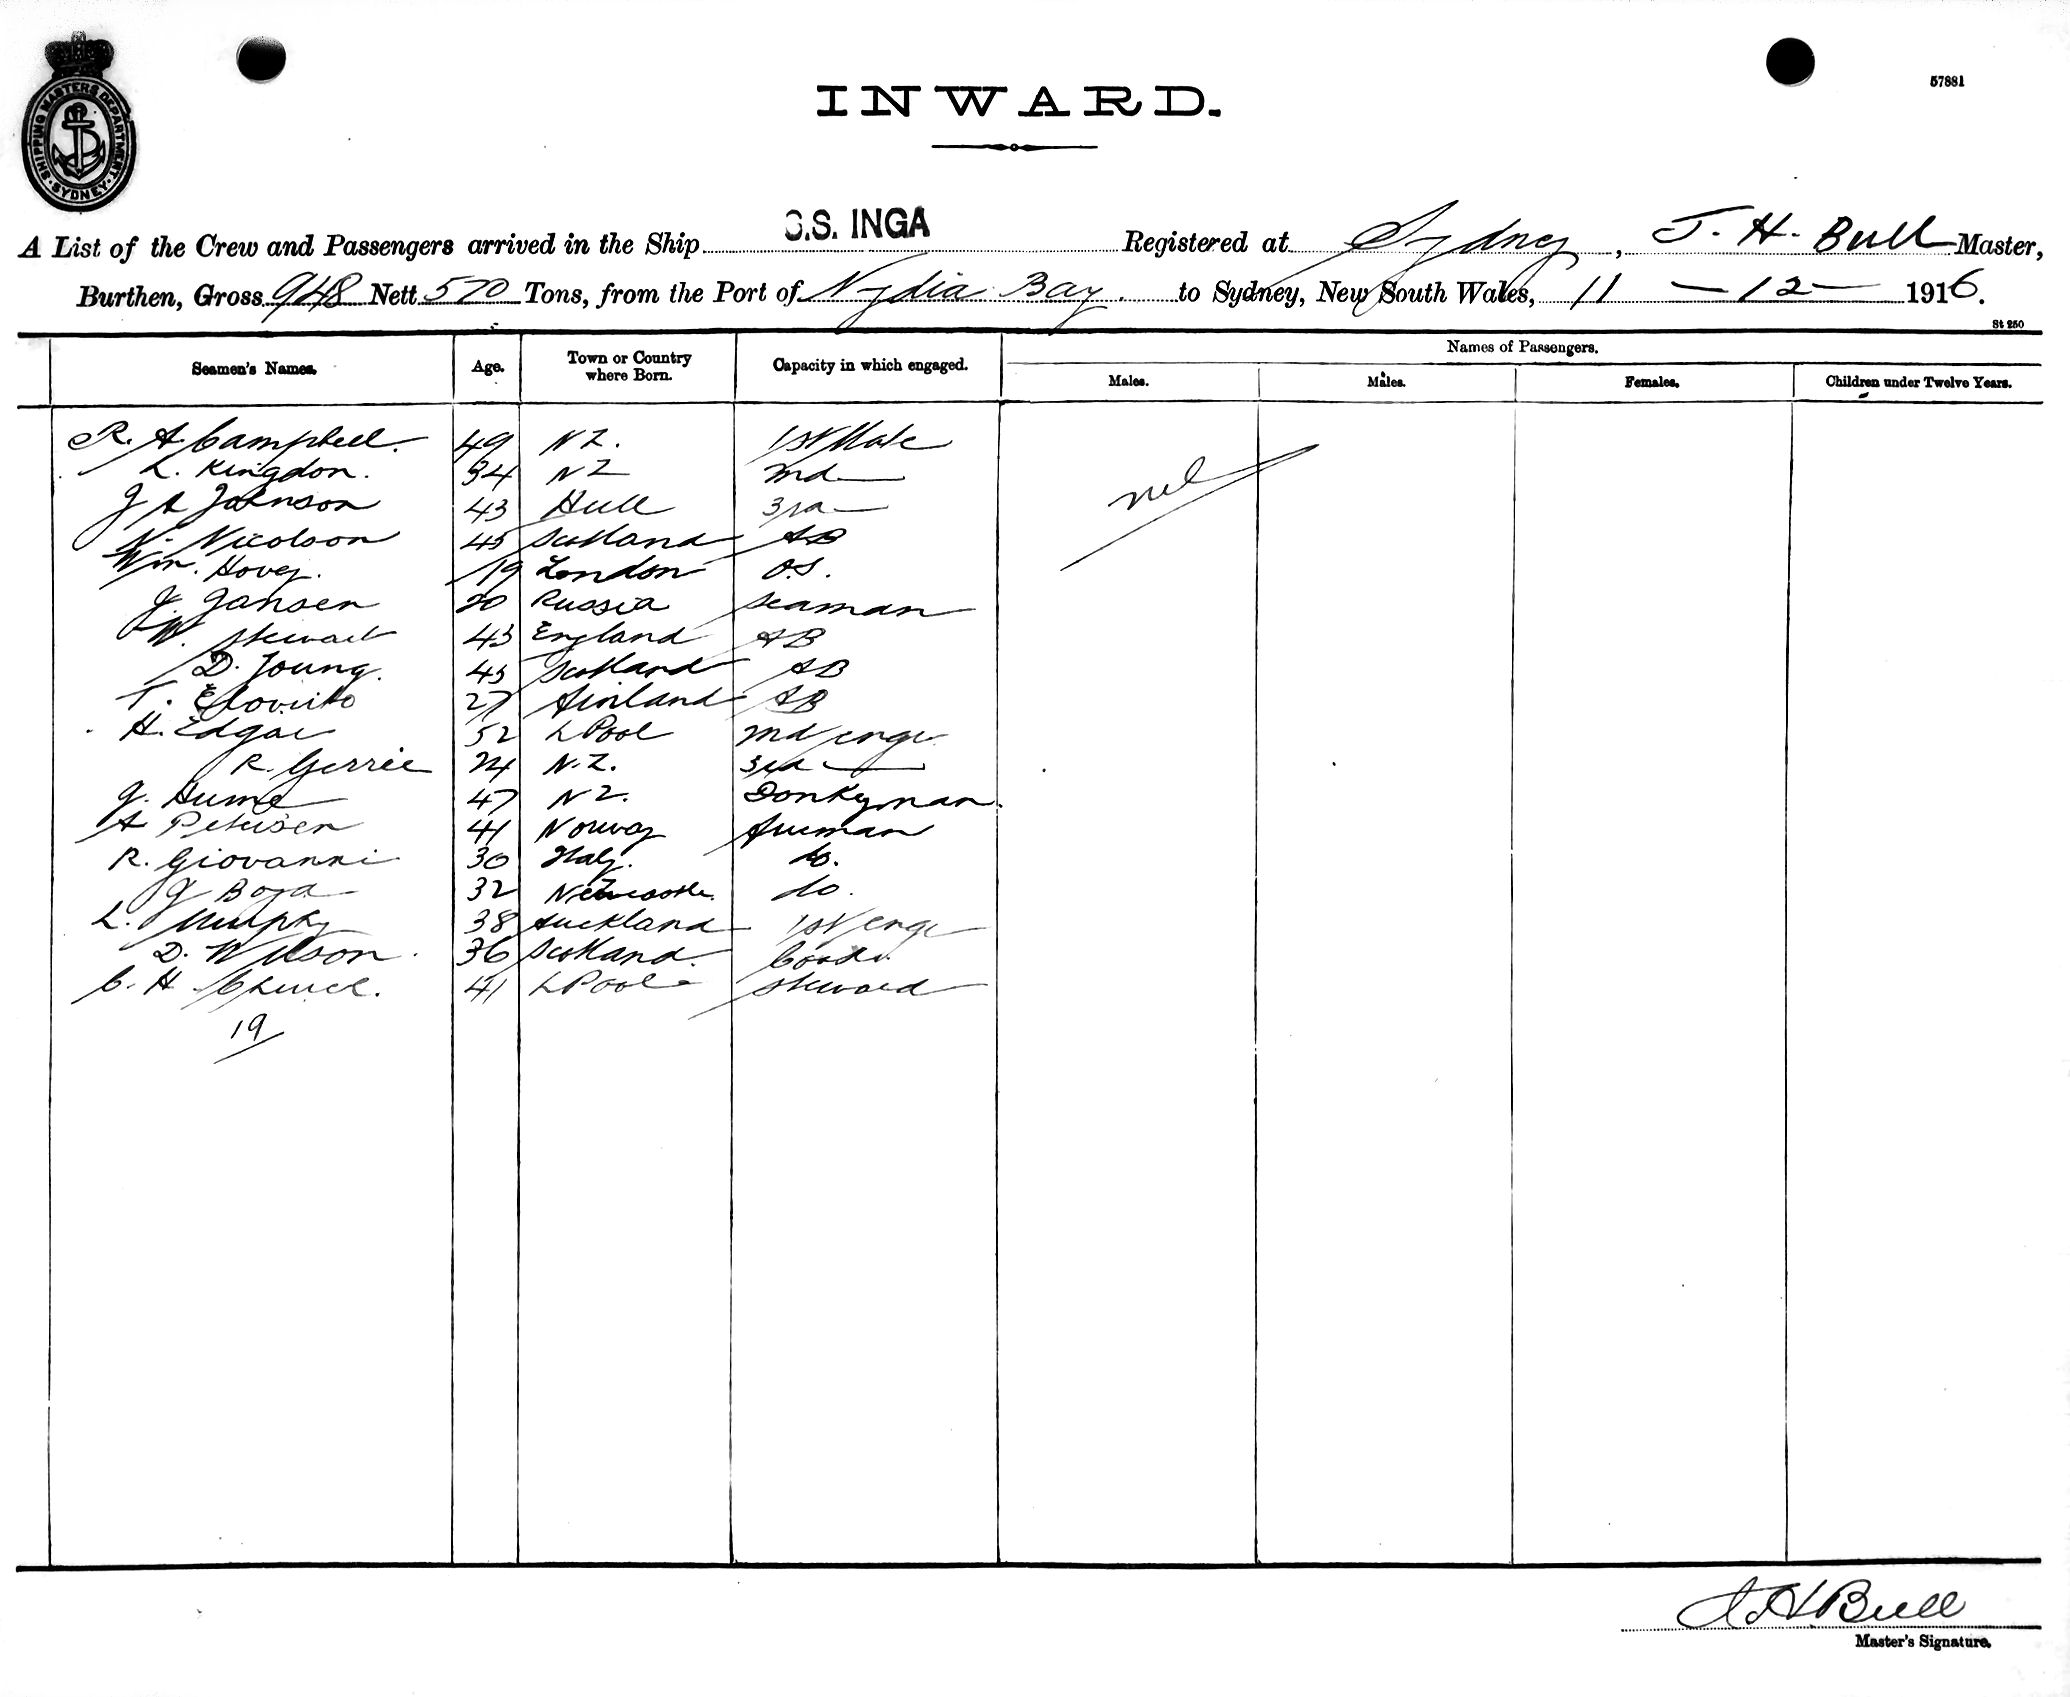 SHIPPING MASTERS DEPARTMENT
SYDNEY
57881
INWARD.
A List of the Crew and Passengers arrived in the Ship S.S. INGA Registered at Sydney, J. H. Bull Master,
Burthen, Gross 948 Nett 570 Tons, from the Port of Nydia Bay. to Sydney, New South Wales, 11 - 12 - 1916.
St 250
Seamen's Names. Age. Town or Country where Born. Capacity in which engaged. Names of Passengers.
Males. Males. Females. Children under Twelve Years.
R. A. Campbell. 49 NZ. 1st Mate
L. Kingdon. 34 NZ 2nd
J A Johnson 43 Hull 3rd
N. Nicolson 45 Scotland AB
Wm. Hovey. 19 London O.S.
J. Jansen 20 Russia Seaman
W. Stewart 43 England AB
D. Young. 45 Scotland AB
T. 27 Finland AB
H. Edgar 52 LPool 2nd engr
R. Gerrie 24 N.Z. 3rd
J. Hume 47 NZ. Donkyman
A Petersen 41 Norway Fireman
R. Giovanni 30 Italy. do.
J 32 Newcastle. do.
L. Murphy 38 Auckland 1st engr
D. Wilson 36 Scotland. Cook
C. H. 41 LPool Steward
19
nil
J H Bull
Master's Signature.